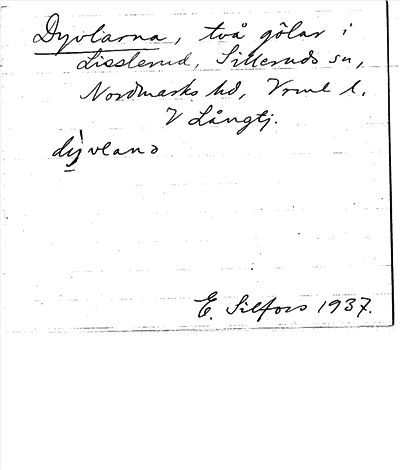 Dyvlarna, två gölar i
Lisslerud, Silleruds sn,
Nordmarks hd, Vrml l.
V Långtj.
dỳ̱vlaṇa
E. Silfors 1937.